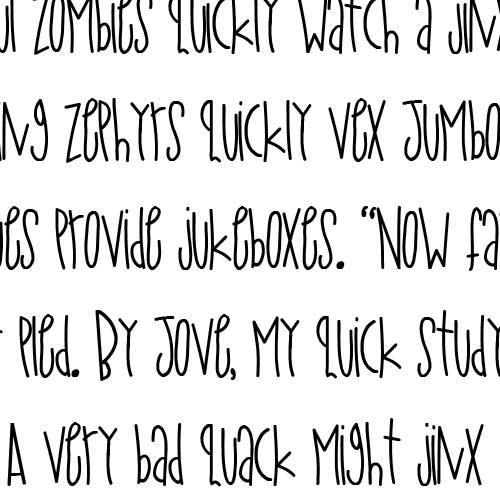 zombies quickly watch a jinx
zephyrs quickly vex jumbo
provide jukeboxes. "Now fa
pled. By Jove, my quick study
A very bad quack might jinx